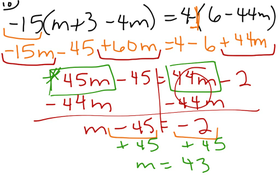 10
-15(m+3-4m) = 4(6-44m)
-15m-45+60m=-4-6+44m
45m-45=44m-2
-44m -44m
m-45=-2
+45 +45
m=43